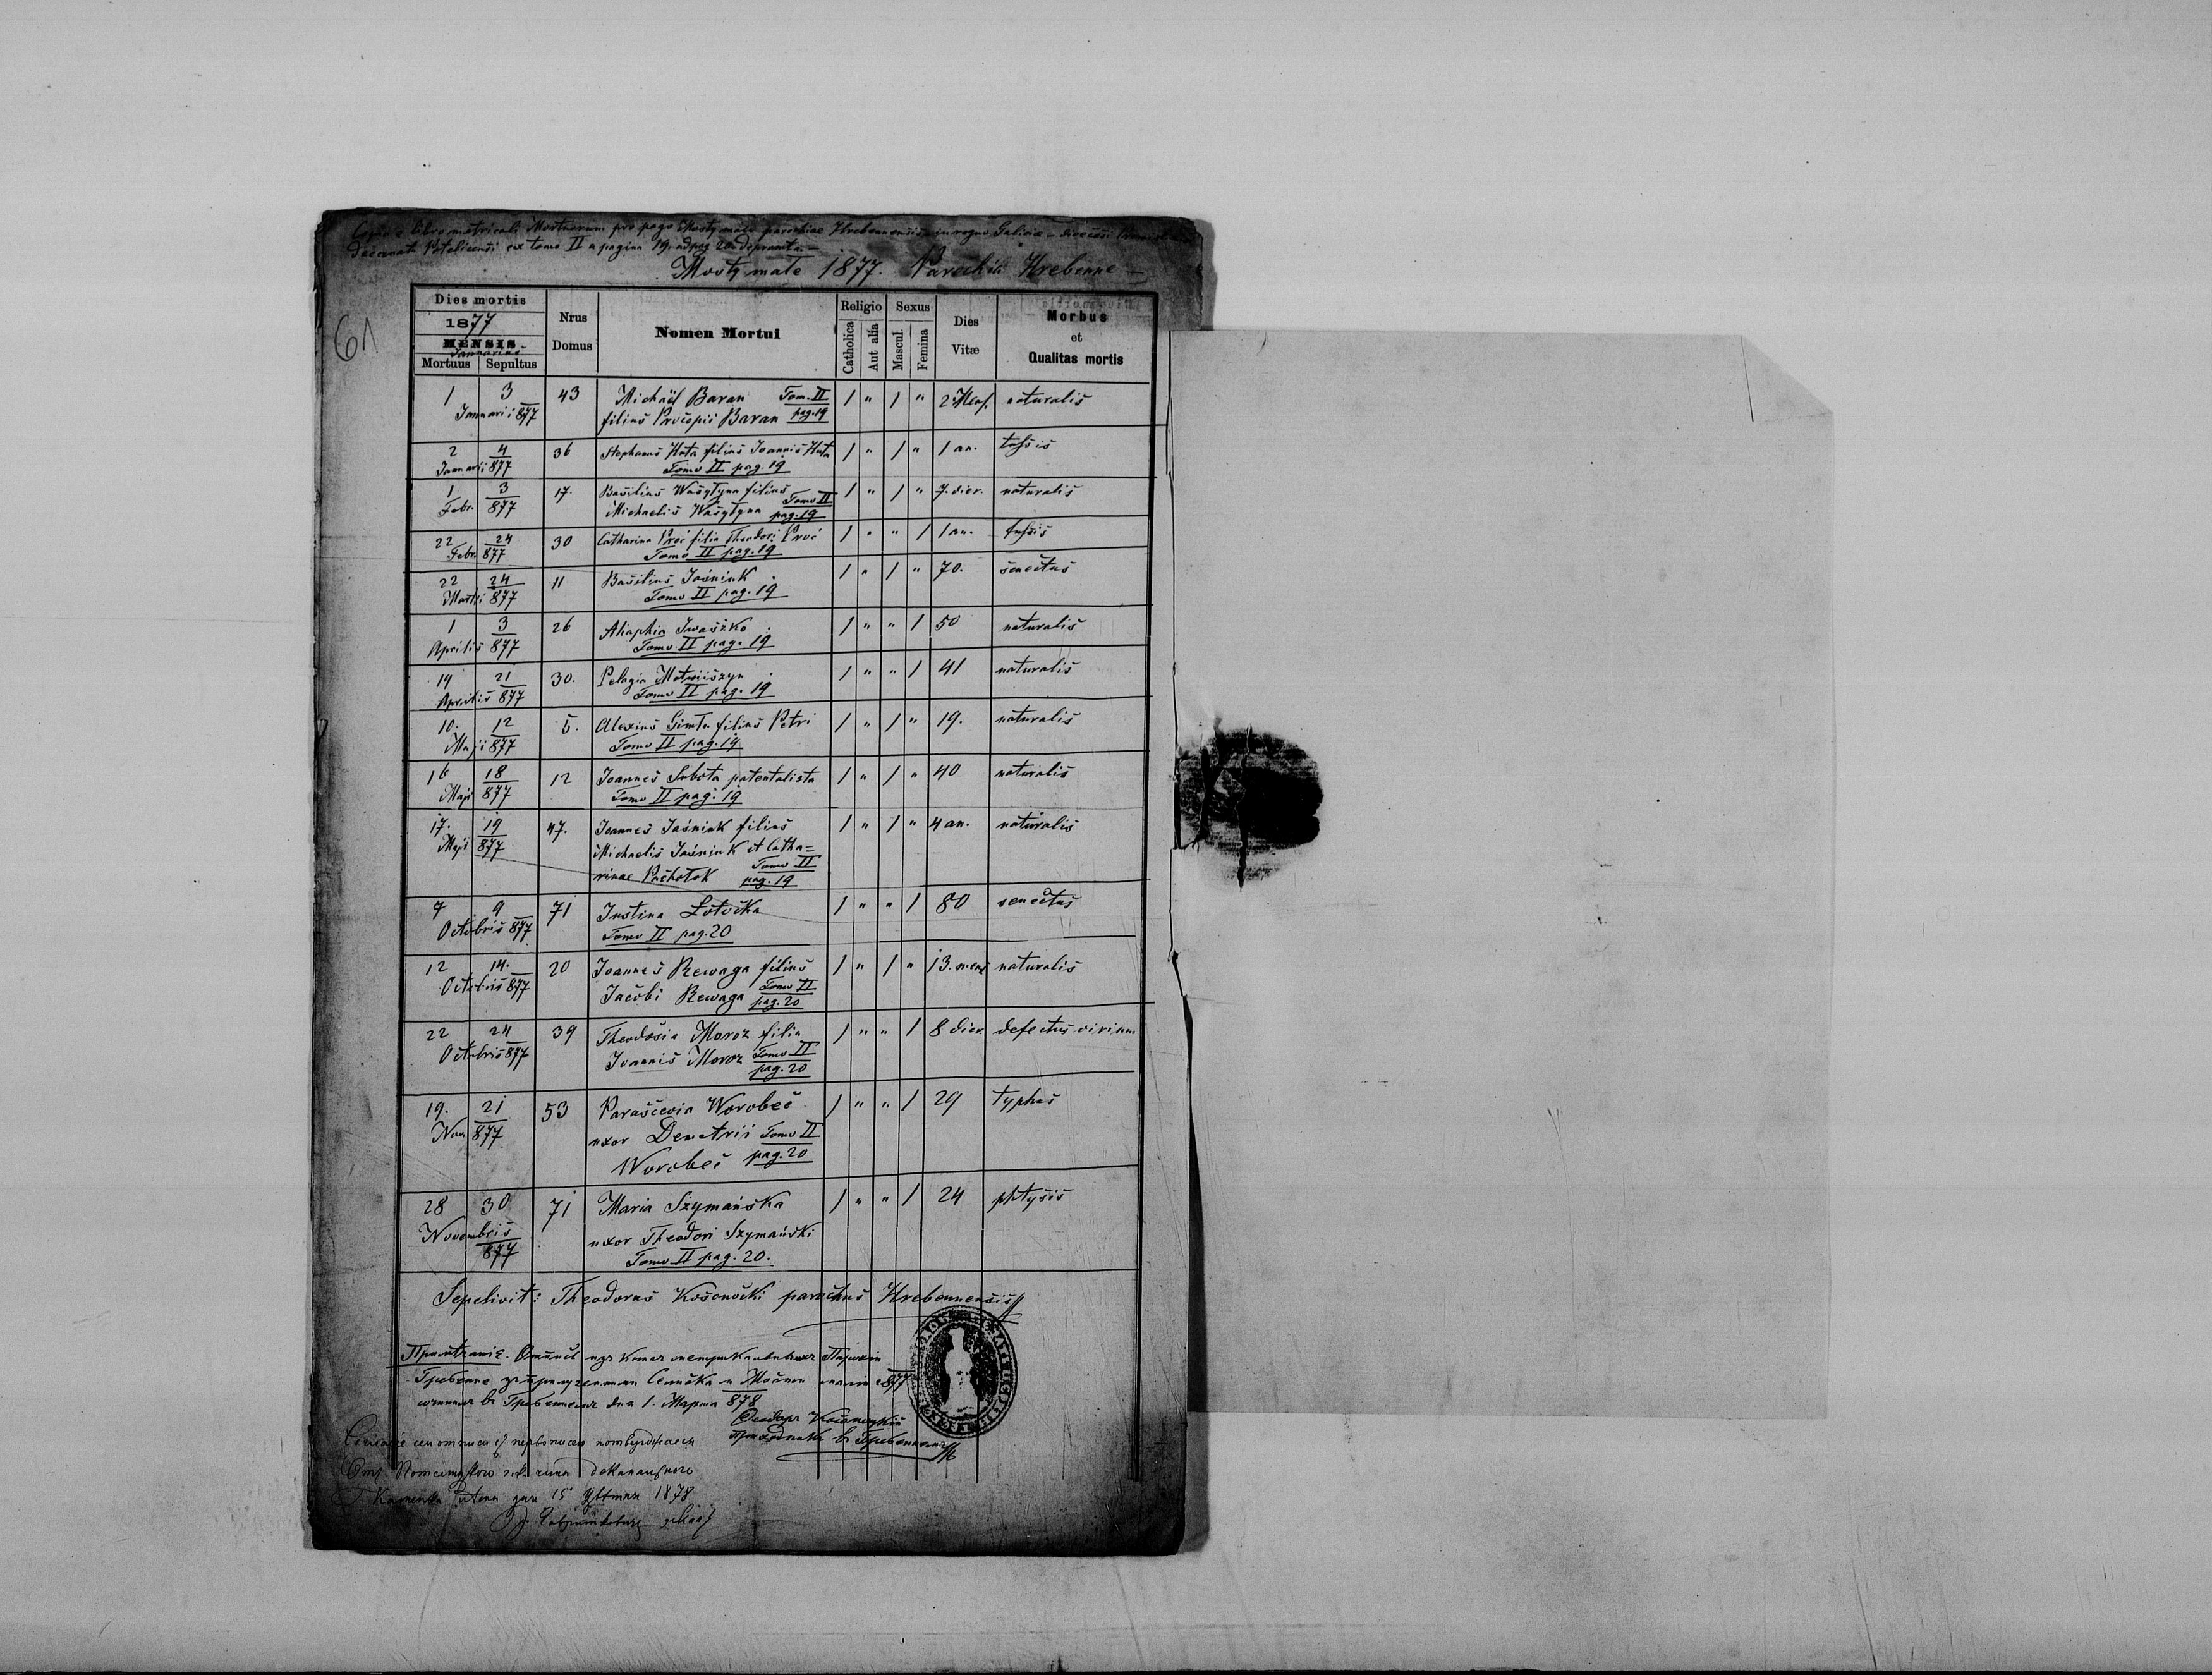 Copia e libro metricali Mortuorum pro pago Mosty małe parochiae Hrebennensis in regno Galiciae dioecesi
Decanatu Potelicensi ex tomo II a pagina 19 ad pag 20 deprompta
Mosty małe 1877. Parochia Hrebenne
61
Dies mortis 1877 MENSIS Januarius Mortuus Sepultus
Nrus Domus
Nomen Mortui
Religio Catholica Aut alia
Sexus Mascul Femina
Dies Vitæ
Morbus et Qualitas mortis
1 3 43 Michaël Baran Tom. II 1 " 1 " 2 Mens. naturalis
Januarii 877 filius Procopii Baran pag. 19
2 4 36 Stephanus Huta filius Joannis Huta 1 " 1 " 1 an. tussis
Januarii 877 Tomo II pag. 19
1 3 17. Basilius Wasytyna filius Tomo II 1 " 1 " 7. dier. naturalis
Febr. 877 Michaelis Wasytyna pag. 19
22 24 30 Catharina Proć filia Theodori Proć 1 " " 1 1 an. tussis
Febr. 877 Tomo II pag. 19
22 24 11 Basilius Jaśniuk 1 " 1 " 70. senectus
Martii 877 Tomo II pag. 19
1 3 26 Ahaphia Iwaszko 1 " " 1 50 naturalis
Aprilis 877 Tomo II pag. 19
19 21 30. Pelagia Matwiiszyn 1 " " 1 41 naturalis
Aprilis 877 Tomo II pag. 19
10. 12 5. Alexius Gimta filius Petri 1 " 1 " 19. naturalis
Maji 877 Tomo II pag. 19
16 18 12 Joannes Sobota patentalista 1 " 1 " 40 naturalis
Maji 877 Tomo II pag. 19
17. 19 47. Joannes Jaśniuk filius 1 " 1 " 4 an. naturalis
Maji 877 Michaelis Jaśniuk et Catha=
rinae Pachotok Tomo II
pag. 19
7 9 71 Justina Łotocka 1 " " 1 80 senectus
Octobris 877 Tomo II pag. 20
12 14. 20 Joannes Rewaga filius 1 " 1 " 13. mens naturalis
Octobris 877 Jacobi Rewaga Tomo II
pag. 20
22 24 39 Theodosia Moroz filia 1 " " 1 8 dier. defectus virium
Octobris 877 Joannis Moroz Tomo II
pag. 20
19. 21 53 Parascevia Worobec 1 " " 1 29 typhus
Nov 877 uxor Demetrii Tomo II
Worobec pag. 20
28 30 71 Maria Szymańska 1 " " 1 24 phtysis
Novembris uxor Theodori Szymański
877 Tomo II pag. 20.
Sepelivit: Theodorus Kosonocki parochus Hrebennensis
Примѣчаніе.
877
в Гребенномъ дня 1. Марта 878
приходникъ в Гребенномъ
15 1878